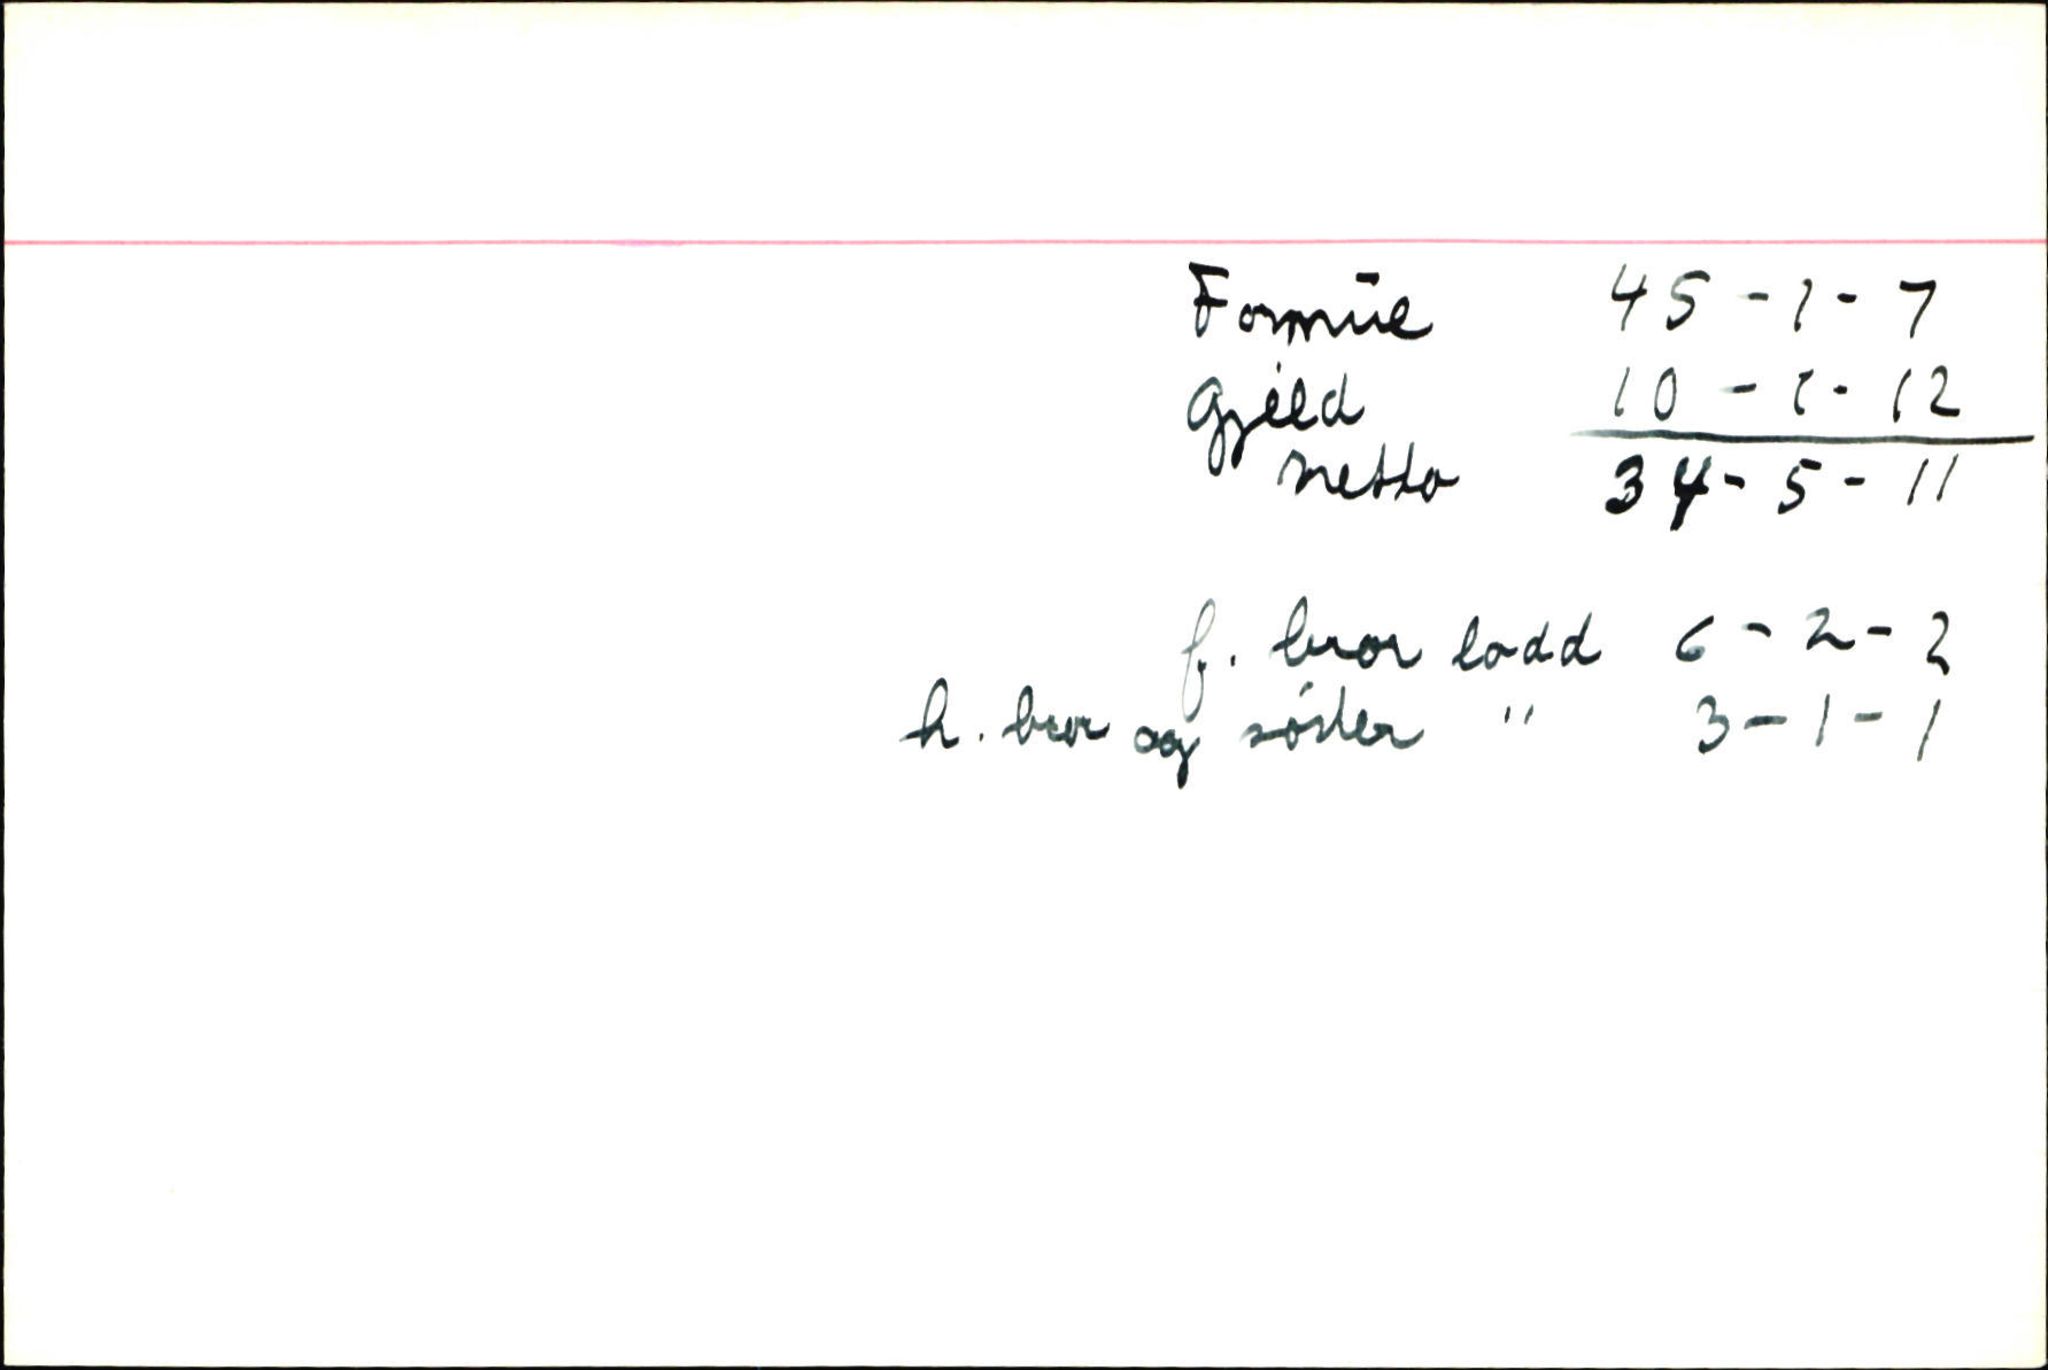 Formūe 45 - 1 - 7
Gjeld 10 - 1 - 12
netto 34 - 5 - 11
f. bror lodd 6 - 2 - 2
h. bror og søster " 3 - 1 - 1